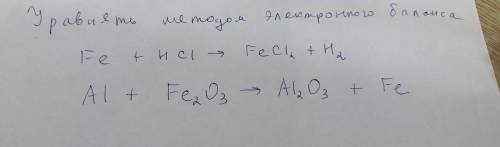 Уравнять методом электронного баланса
Fe + HCl → FeCl₂ + H₂
Al + Fe₂O₃ → Al₂O₃ + Fe